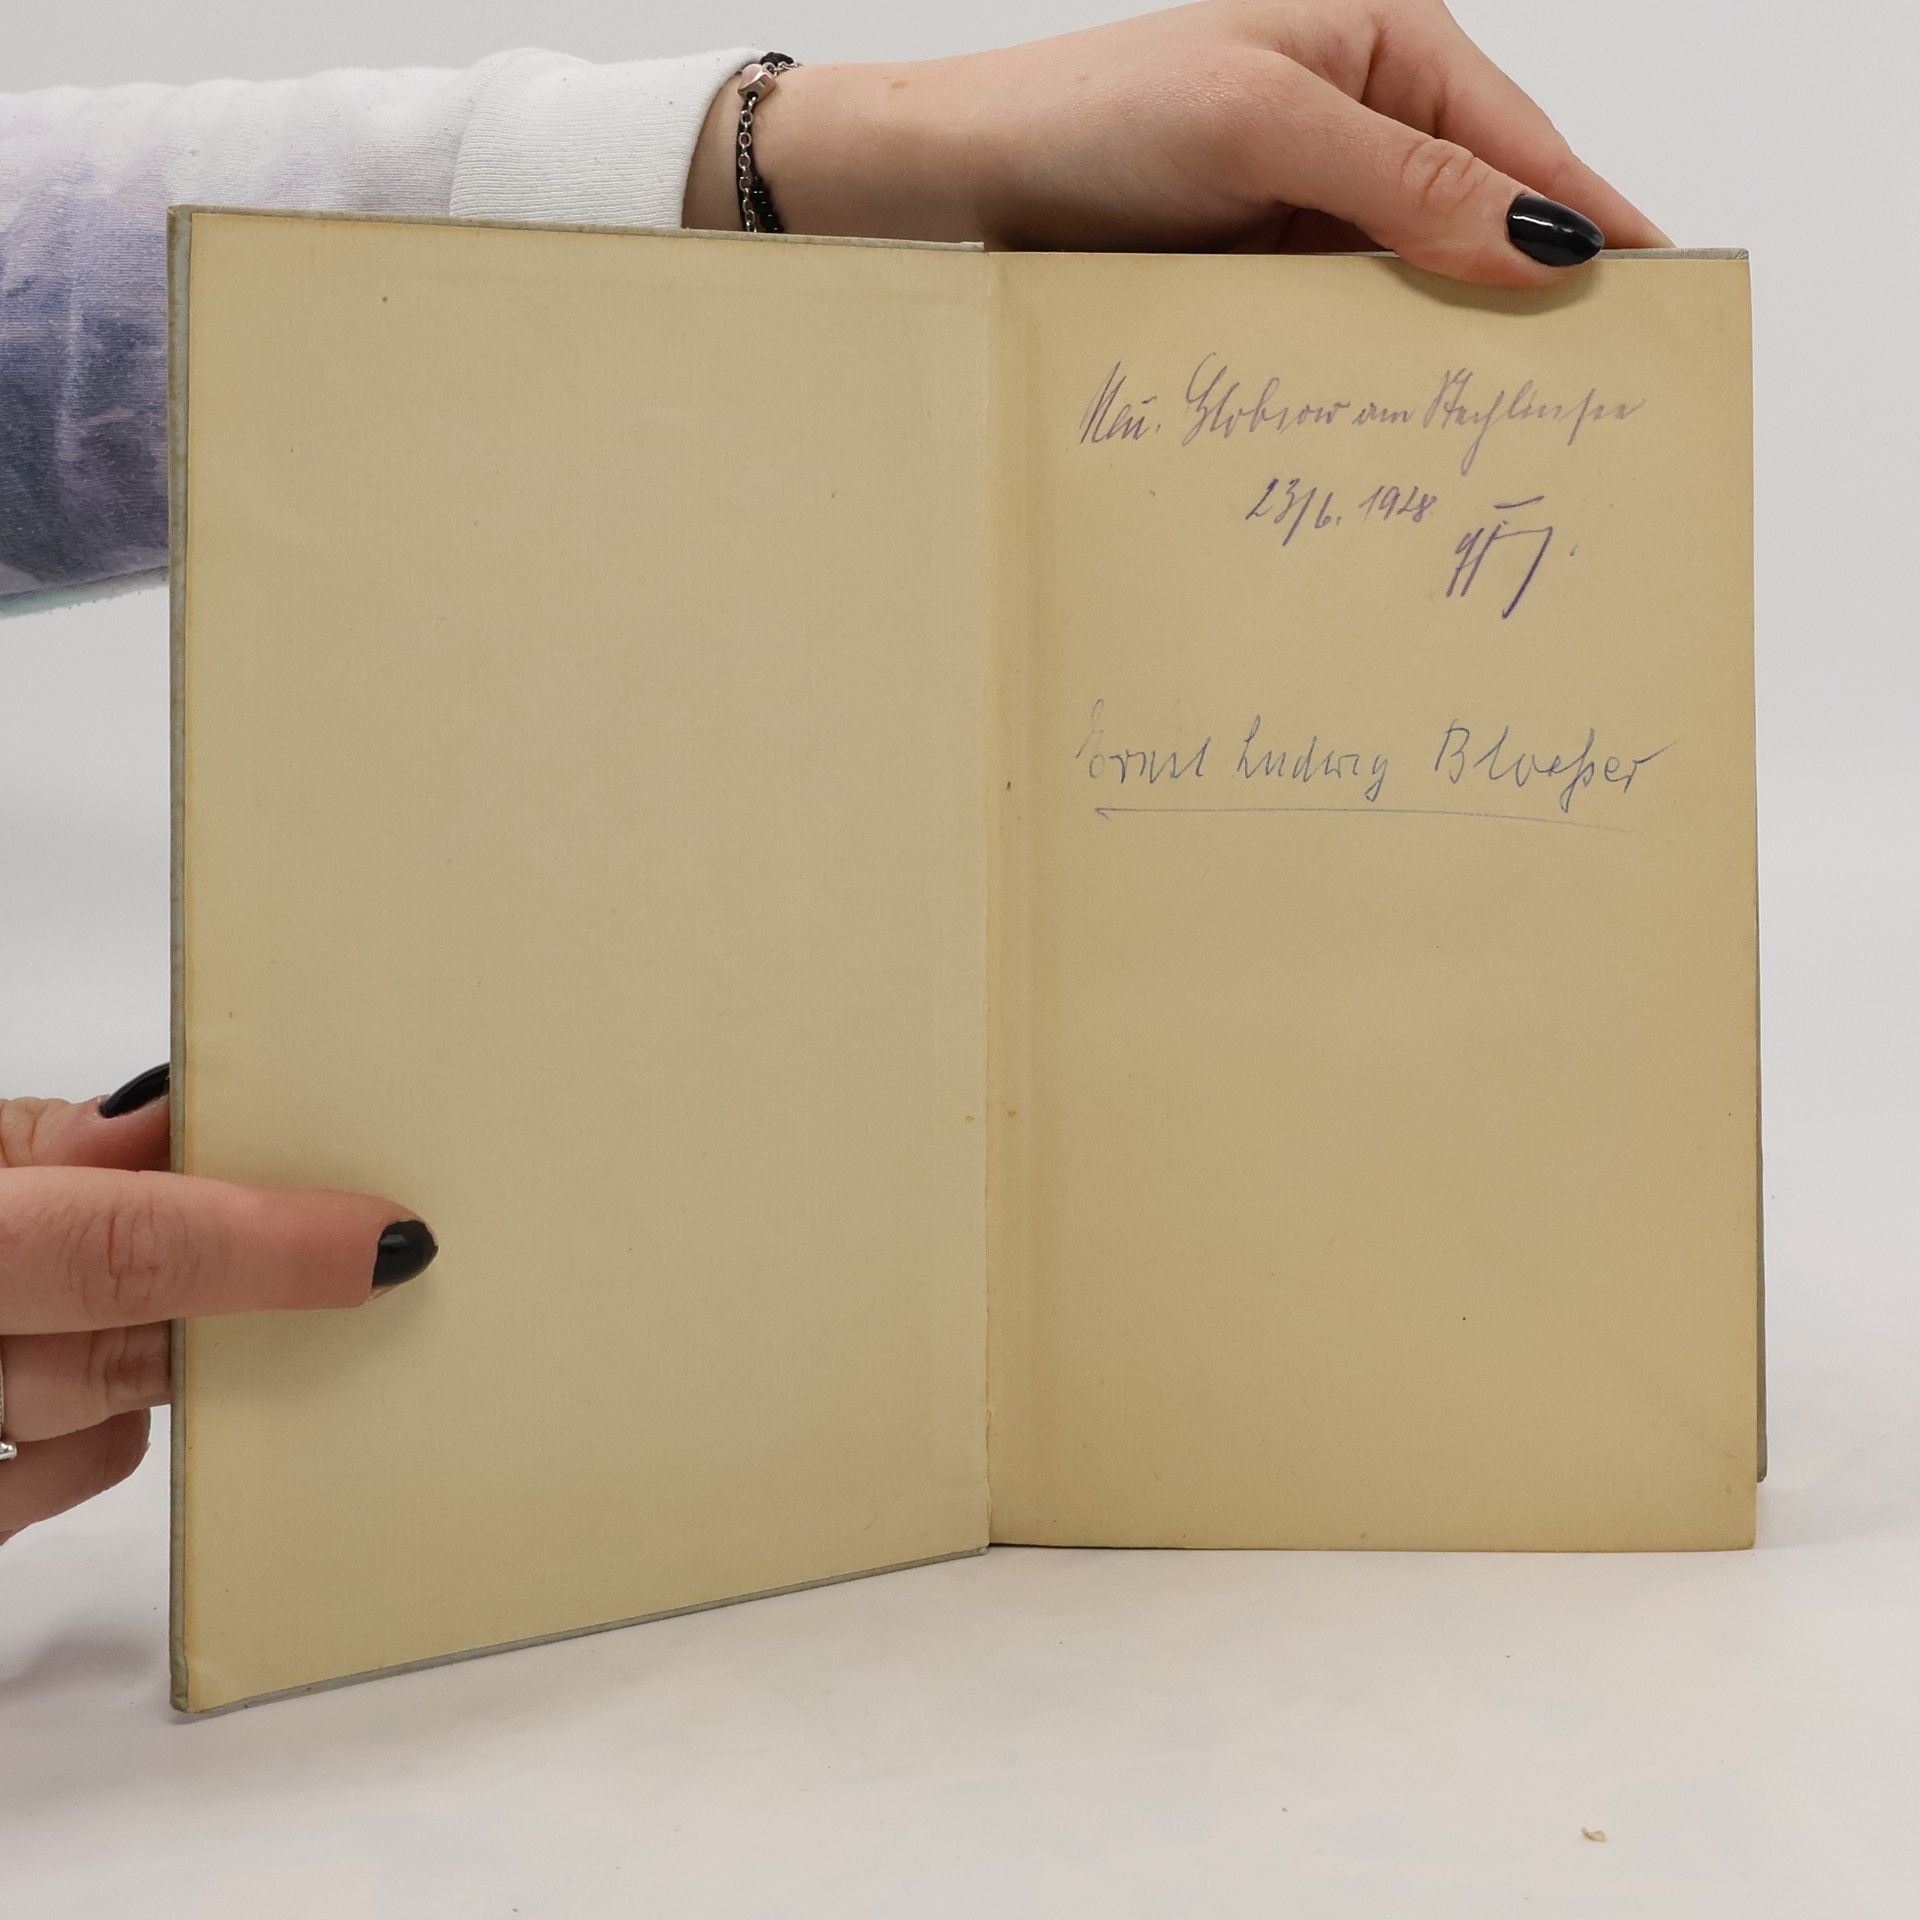 Neu. Globsow am Stechlinsee
23/6. 1928.
Ernst Ludwig Bloeßer